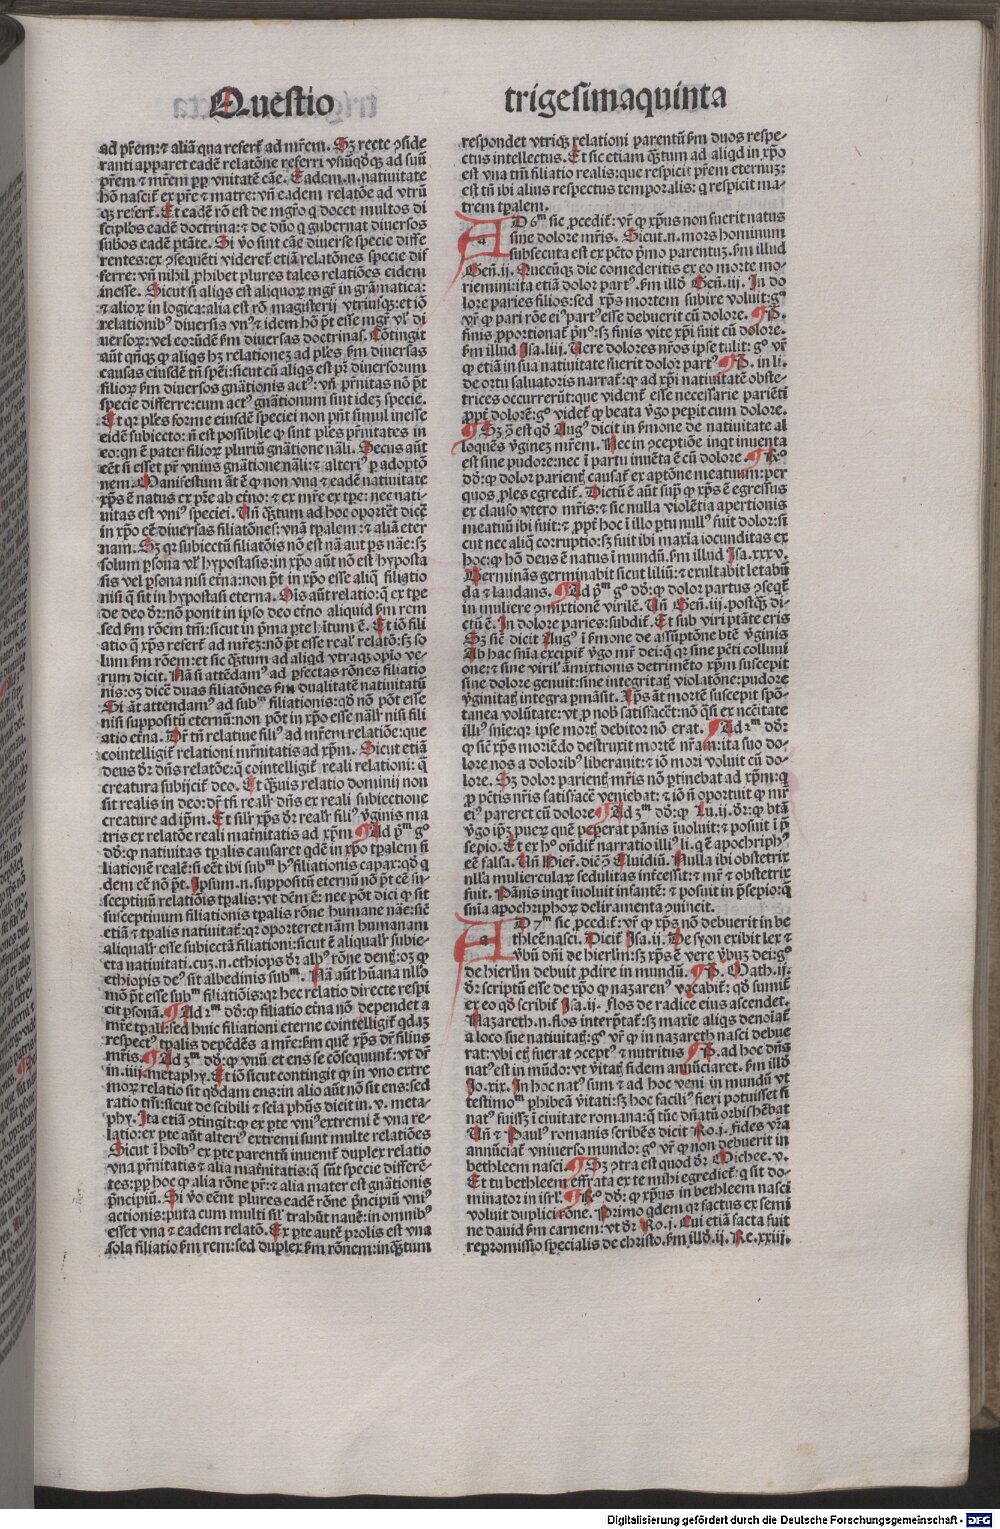 Questio
trigesimaquinta
ad pr̄em: ⁊ aliā qua refert̄ ad mr̄em. Sꝫ recte ꝯside
ranti apparet eadē relatōne referri vnūqḋqꝫ ad suū
pr̄em ⁊ mr̄em ꝓp̄ vnitatē cāe. Eadem .n. natiuitate
hō nascit̄ ex pr̄e ⁊ matre: vn̄ eadem relatōe ad vtrū
qꝫ refert̄. Et eadē rō est de mgr̄o q̄ docet multos di
sciplos eadē doctrina: ⁊ de dn̄o q̄ gubernat diuersos
sub̄os eadē p̄tāte. Si v̄o sint cāe diuerse specie diffe
rentes: ex ꝯseq̄nti videret̄ etiā relatōnes specie dif
ferre: vn̄ nihil ꝓhibet plures tales relatiōes eidem
inesse. Sicut si aliqs est aliquoꝝ mgr̄ in grāmatica:
⁊ alioꝝ in logica: alia est rō magisterii vtriusqꝫ: et iō
relationibꝰ diuersis vnꝰ ⁊ idem hō p̄t esse mgr̄ vl̓ di
uersoꝝ: vel eorūdē ẜm diuersas doctrinas. Cōtingit
aūt qn̄qꝫ ꝙ aliqs hꝫ relationeꝫ ad pl̄es ẜm diuersas
causas eiusdē tn̄ sp̄ei: sicut cū aliqs est pr̄ diuersorum
filioꝝ ẜm diuersos gn̄ationis actꝰ: vn̄ pr̄nitas nō p̄t
specie differre: cum actꝰ gn̄ationum sint ideꝫ specie.
Et qꝛ pl̄es forme eiusdē speciei non pn̄t simul inesse
eidē subiecto: n̄ est possibile ꝙ sint pl̄es pr̄nitates in
eo: qui ē pater filioꝝ pluriū gn̄atione nāli. Secus aūt
eēt si esset pr̄ vnius gn̄atione nāli: ⁊ alteriꝰ ꝑ adoptō
nem. Manifestum āt ē ꝙ non vna ⁊ eadē natiuitate
xp̄s ē natus ex pr̄e ab etn̄o: ⁊ ex mr̄e ex tpe: nec nati⸗
uitas est vniꝰ speciei. Un̄ q̄ꝫtum ad hoc oportēt dicē
in xp̄o eē diuersas filiatōnes: vnā tp̄alem: ⁊ aliā eter
nam. Sꝫ qꝛ subiectū filiatōis nō est nā aut ps nāe: sꝫ
solum ꝑsona vel hypostasis: in xp̄o aūt nō est hyposta
sis vel ꝑsona nisi etn̄a: non p̄t in xp̄o esse aliq̄ filiatio
nisi q̄ sit in hypostasi eterna. Ois aūt relatio: q̄ ex tp̄e
de deo dr̄: nō ponit in ipso deo etn̄o aliquid ẜm rem
sed ẜm rōem tm̄: sicut in p̄ma ꝑte hītum ē. Et iō fili
atio q̄ xp̄s refert̄ ad mr̄eꝫ: nō p̄t esse real̓ relatō: sꝫ so
lum ẜm rōem: et sic q̄ꝫtum ad aliqd vtraqꝫ opio ve⸗
rum dicit. Nā si attēdamꝰ ad ꝑfectas rōnes filiatio
nis: oꝫ dicē duas filiatōnes ẜm dualitatē natiuitatū
Si āt attendamꝰ ad subᵐ filiationis: qḋ nō pōt esse
nisi suppositū eternū: non pōt in xp̄o esse nāl̓r nisi fili
atio etn̄a. Dr̄ tn̄ relatiue filiꝰ ad mr̄em relatiōe: que
cointelligit̄ relationi mr̄nitatis ad xp̄m. Sicut etiā
deus dr̄ dn̄s relatōe: q̄ cointelligit̄ reali relationi: q̄
creatura subijcit̄ deo. Et q̄ꝫuis relatio dominii non
sit realis in deo: dr̄ tn̄ real̓r dn̄s ex reali subiectione
creature ad ip̄m. Et sil̓r xp̄s dr̄ real̓r filiꝰ v̓ginis ma
tris ex relatōe reali mat̓nitatis ad xp̄m ¶ Ad p̄ᵐ gͦ
dḋ: ꝙ natiuitas tp̄alis causaret qdē in xp̄o tp̄alem fi
liationē realē: si eēt ibi subᵐ hꝰ filiationis capax: qḋ q̄
dem eē nō p̄t. Ipsum .n. suppositū eternū nō p̄t eē su⸗
sceptiuū relatiōis tp̄alis: vt dem̄ ē: nec pōt dici ꝙ sit
susceptiuum filiationis tp̄alis rōne humane nāe: siē
etiā ⁊ tp̄alis natiuitat̄: qꝛ oporteret nām humanam
aliqual̓r esse subiectā filiationi: sicut ē aliqual̓r subie⸗
cta natiuitati. cuꝫ .n. ethiops dr̄ albꝰ rōne dent̄: oꝫ ꝙ
ethiopis deꝰ sit albedinis subᵐ. Nā aūt hūana nullo
mō p̄t esse subᵐ filiatiōis: qꝛ hec relatio directe respi
cit ꝑsonā. ¶ Ad 2ᵐ dḋ: ꝙ filiatio etn̄a nō dependet a
mr̄e tp̄ali: sed huic filiationi eterne cointelligit̄ qdaꝫ
respectꝰ tp̄alis depēdēs a mr̄e: ẜm quē xp̄s dr̄ filius
mr̄is. ¶ Ad 3ᵐ dḋ: ꝙ vnū et ens se cōsequunt̄: vt dr̄
in .iiij. metaphy. Et iō sicut contingit ꝙ in vno extre
moꝝ relatio sit qḋdam ens: in alio aūt nō sit ens: sed
ratio tm̄: sicut de scibili ⁊ scīa ph̄us dicit in .v. meta⸗
phy. Ita etiā ꝯtingit: ꝙ ex ꝑte vniꝰ extremi ē vna re⸗
latio: ex ꝑte aūt alteriꝰ extremi sunt multe relatiōes
Sicut ī hoībꝰ ex ꝑte parentū inuenit̄ duplex relatio
vna pr̄nitatis ⁊ alia mat̄nitatis: q̄ sūt specie differē⸗
tes: ꝓp̄ hoc ꝙ alia rōne pr̄: ⁊ alia mater est gn̄ationis
p̄ncipiū. Si v̄o eēnt plures eadē rōne p̄ncipiū vniꝰ
actionis: puta cum multi sil̓ trahūt nauē: in omnibꝰ
esset vna ⁊ eadem relatō. Ex ꝑte autē prolis est vna
sola filiatio ẜm rem: sed duplex ẜm rōnem: inq̄ꝫtum
respondet vtriqꝫ relationi parentū ẜm duos respe⸗
ctus intellectus. Et sic etiam q̄ꝫtum ad aliqd in xp̄o
est vna tm̄ filiatio realis: que respicit pr̄em eternuꝫ:
est tn̄ ibi alius respectus temporalis: q̄ respicit ma⸗
trem tp̄alem.
AD 6ᵐ sic ꝓcedit̄: vr̄ ꝙ xp̄us non fuerit natus
sine dolore mr̄is. Sicut .n. mors hominum
subsecuta est ex pctō p̄mo parentuꝫ: ẜm illud
Geñ. ij. Quecūqꝫ die comederitis ex eo morte mo⸗
riemini: ita etiā dolor partꝰ. ẜm illḋ Geñ. iij. In do
lore paries filios: sed xp̄s mortem subire voluit: gͦ
vr̄ ꝙ pari rōe eiꝰ partꝰ esse debuerit cū dolore. ¶ P̄.
finis ꝓportionat̄ pn̄ᵒ: sꝫ finis vite xp̄i fuit cū dolore.
ẜm illud Isa. liij. Uere dolores nr̄os ipse tulit: gͦ vr̄
ꝙ etiā in sua natiuitate fuerit dolor partꝰ ¶ P̄. in li.
de ortu saluatoris narrat̄: ꝙ ad xp̄i natiuitatē obste⸗
trices occurrerūt: que vident̄ esse necessarie pariēti
ꝓpt̄ dolorē: gͦ videt̄ ꝙ beata v̓go peꝑit cum dolore.
¶ Sꝫ ꝯ̄ est qḋ Augꝰ dicit in ẜmone de natiuitate al
loquēs v̓gineꝫ mr̄em. Nec in ꝯceptiōe inqt inuenta
est sine pudore: nec ī partu inuēta ē cū dolore. ¶ Rͦ
dḋ: ꝙ dolor parient̄ causat̄ ex aptōne meatuum: per
quos ꝓles egredit̄. Dictū ē aūt supͣ ꝙ xp̄s ē egressus
ex clauso vtero mr̄is: ⁊ sic nulla violētia apertionis
meatuū ibi fuit: ⁊ ꝓpt̄ hoc ī illo ptu nullꝰ fuit dolor: si
cut nec aliq̄ corruptio: sꝫ fuit ibi maxīa iocunditas ex
hoc: ꝙ hō deus ē natus ī mundū. ẜm illud Isa. xxxv.
Germinās germinabit sicut liliū: ⁊ exultabit letabū
da ⁊ laudans. ¶ Ad p̄ᵐ gͦ dḋ: ꝙ dolor partus ꝯseqt̄
in muliere ꝯmixtionē virilē. Un̄ Geñ. iij. postq̄ꝫ di⸗
ctū ē. In dolore paries: subdit̄. Et sub viri ptāte eris
Sꝫ siē dicit Augꝰ ī ẜmone de assūptōne btē v̓ginis
Ab hac snīa excipit̄ v̓go mr̄ dei: q̄ qꝛ sine pcti colluui
one: ⁊ sine virilꝰ āmixtionis detrimēto xp̄m suscepit
sine dolore genuit: sine integritat̄ violatōne: pudore
v̓ginitat̄ integra ꝑmāsit. Xp̄s āt mortē suscepit spō⸗
tanea volūtate: vt ꝓ nob̄ satisfaceēt: nō q̄si ex nc̄citate
illiꝰ snīe: qꝛ ipse mort̄ debitor nō erat. ¶ Ad 2ᵐ dḋ:
ꝙ siē xp̄s moriēdo destruxit mortē nr̄am: ita suo do⸗
lore nos a doloribꝰ liberauit: ⁊ iō mori voluit cū do⸗
lore. Sꝫ dolor parient̄ mr̄is nō ꝑtinebat ad xp̄m: q̄
ꝓ pctis nr̄is satisfacē veniebat: ⁊ iō n̄ oportuit ꝙ mr̄
eiꝰ pareret cū dolore ¶ Ad 3ᵐ dḋ: ꝙ Lu. ij. dr̄: ꝙ btā
v̓go ip̄ꝫ puerꝫ quē peꝑerat pānis īuoluit: ⁊ posuit ī p̄
sepio. Et ex hͦ on̄dit̄ narratio illiꝰ li. q̄ ē apochriphꝰ
eē falsa. Un̄ Hier̄. dic̄ ꝯ̄ Eluidiū. Nulla ibi obstetrix
nlla muliercularꝫ sedulitas int̄cessit: ⁊ mr̄ ⁊ obstetrix
fuit. Pānis inqt īuoluit infantē: ⁊ posuit in p̄sepio: q̄
snīa apochriphoꝝ deliramenta ꝯuincit.
AD 7ᵐ sic ꝓcedit̄: vr̄ ꝙ xp̄s nō debuerit in be
thleē nasci. Dicit̄ Isa. ij. De syon exibit lex ⁊
v̓bū dn̄i de hierl̄m: sꝫ xp̄s ē vere v̓buꝫ dei: gͦ
de hierl̄m debuit ꝓdire in mundū. ¶ P̄. Math. ij.
dr̄ scriptū esse de xp̄o ꝙ nazarenꝰ vocabit̄: qḋ sumit̄
ex eo qḋ scribit̄ Isa. ij. flos de radice eius ascendet.
Nazareth .n. flos interp̄tat̄: sꝫ maxīe aliqs denoīat̄
a loco sue natiuitat̄: gͦ vr̄ ꝙ in nazareth nasci debue
rat: vbi et̄ fuerat ꝯceptꝰ ⁊ nutritus ¶ P̄. ad hoc dn̄s
natꝰ est in mūdo: vt v̓itat̄ fidem annūciaret. ẜm illḋ
Jo. xix. In hoc natꝰ sum ⁊ ad hoc veni in mundū vt
testimoᵐ ꝑhibeā v̓itati: sꝫ hoc faciliꝰ fieri potuisset si
natꝰ fuissꝫ ī ciuitate romana: q̄ tūc dn̄atū orbis hēbat
Un̄ ⁊ Paulꝰ romanis scribēs dicit Ro. j. fides vr̄a
annūciat̄ vniuerso mundo: gͦ vr̄ ꝙ non debuerit in
bethleem nasci. ¶ Sꝫ ꝯtra est quod dr̄ Michee. v.
Et tu bethleem effrata ex te mihi egrediet̄: q̄ sit do⸗
minator in isrl̄. ¶ Rͦ dḋ: ꝙ xp̄us in bethleem nasci
voluit duplici rōne. Primo qdem qꝛ factus ex semi
ne dauid ẜm carnem: vt dr̄ Ro. j. Cui etiā facta fuit
repromissio specialis de christo. ẜm illḋ. ij. Re. xxiij.
Digitalisierung gefördert durch die Deutsche Forschungsgemeinschaft - DFG